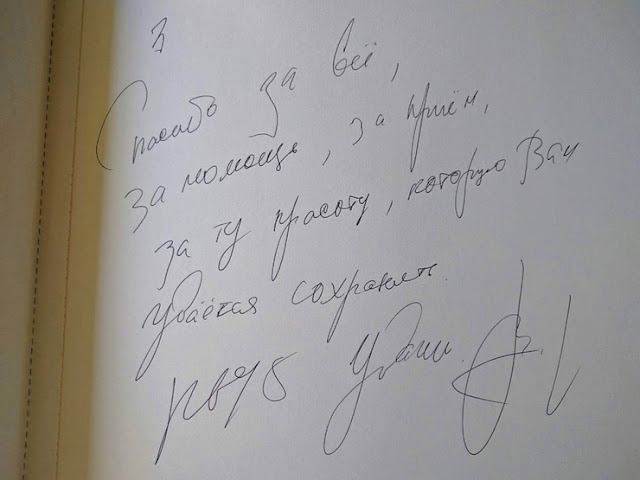 З
Спасибо за всё,
за помощь, за приём,
за ту красоту, которую Вам
удаётся сохранять.
Удачи.